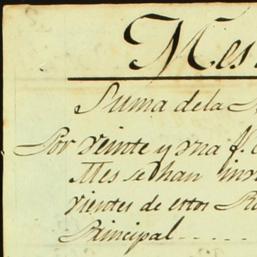 Mes
Suma de la
Por veinte y una f.
Mes se han inv
vientes de estos R
Principal